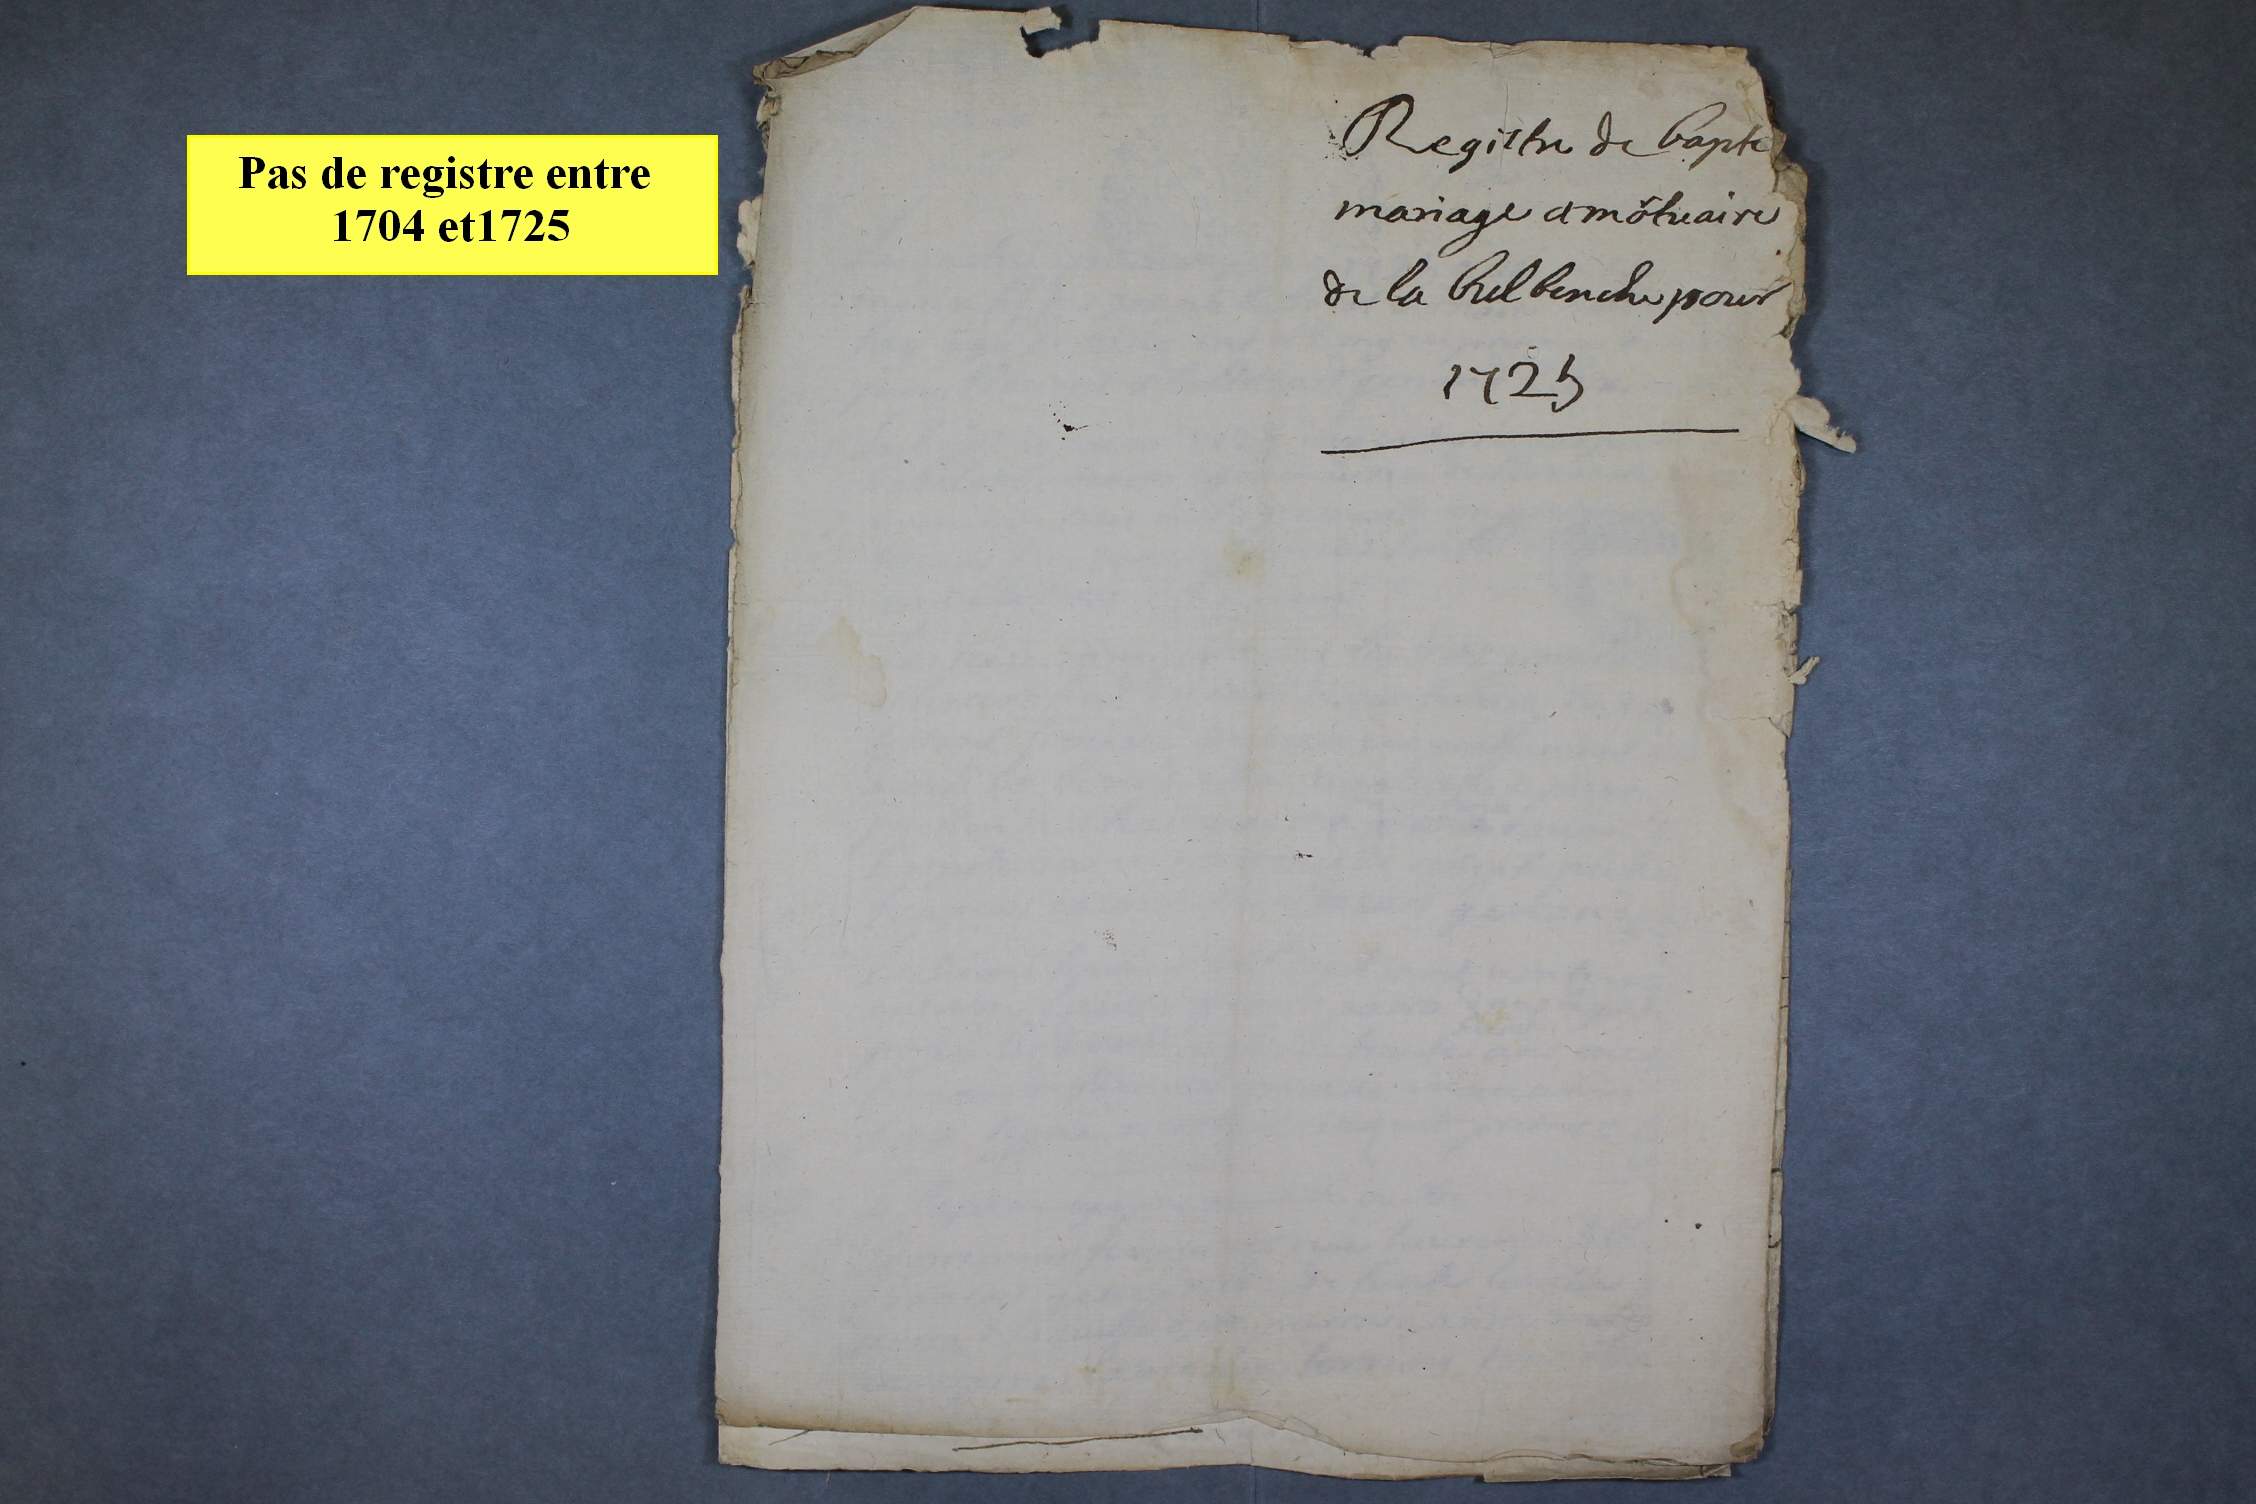 Pas de registre entre
1704 et1725
Registre de bapte
mariage et môtuaire
de la bulbenche pour
1725